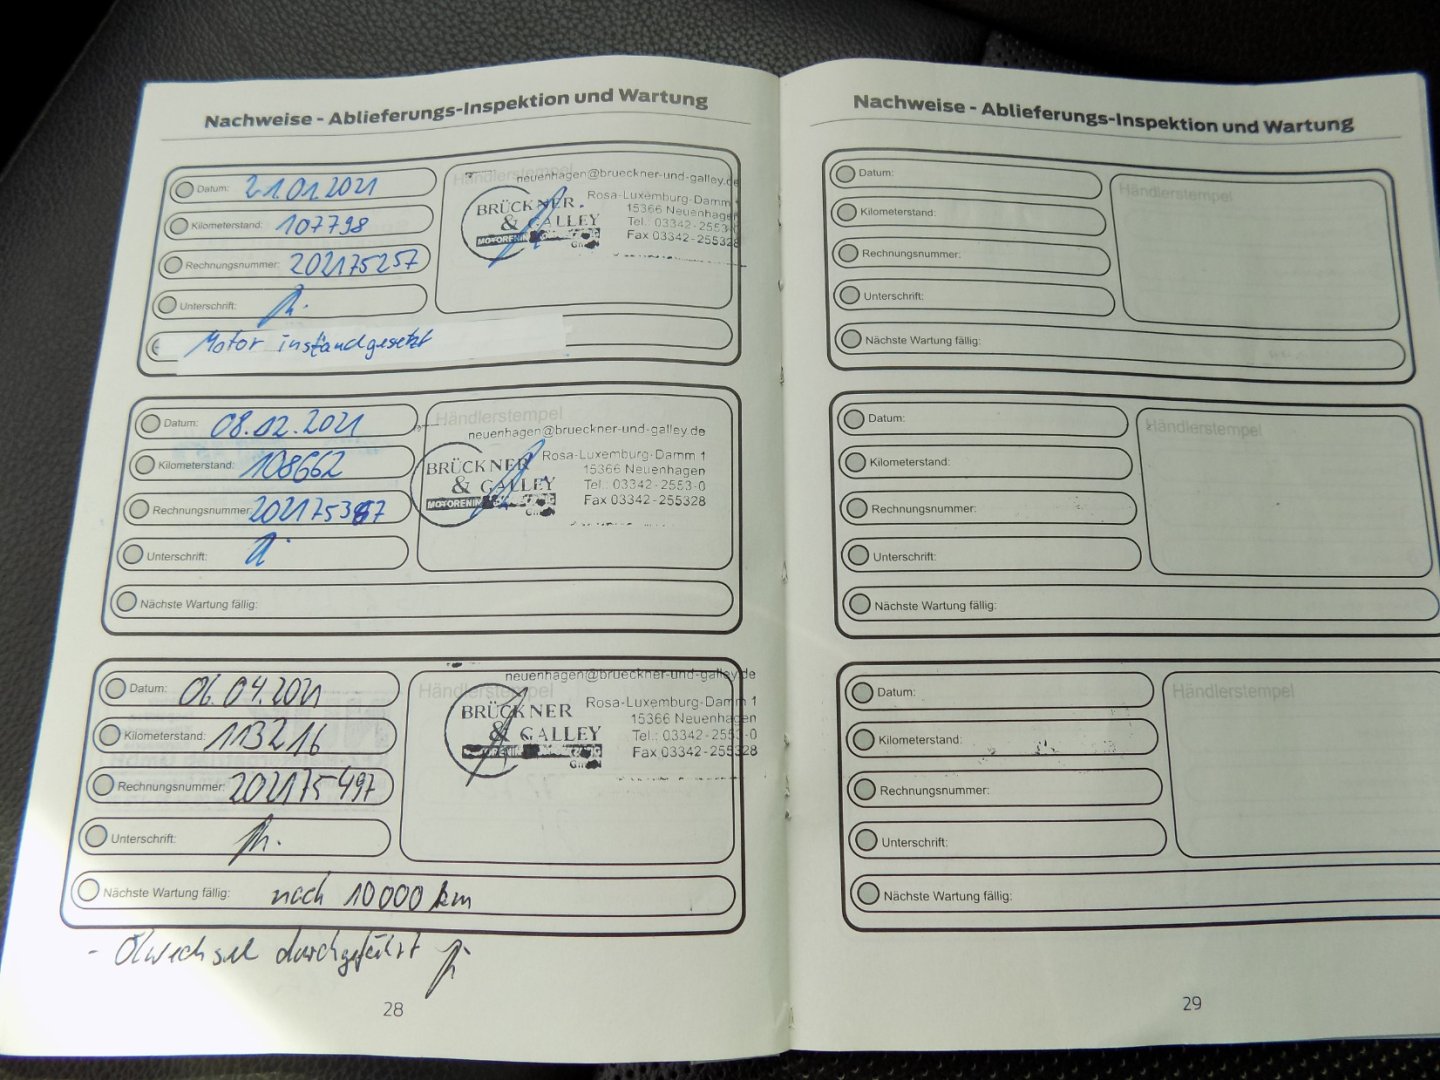 Nachweise - Ablieferungs-Inspektion und Wartung
Datum: 21.01.2021
Kilometerstand: 107798
Rechnungsnummer: 202175257
Unterschrift:
Motor instandgesetzt
Händlerstempel
neuenhagen@brueckner-und-galley.de
BRÜCKNER
& GALLEY
MOTOREN
GmbH
Rosa-Luxemburg-Damm 1
15366 Neuenhagen
Tel.: 03342-2553-0
Fax 03342-255328
Datum: 08.02.2021
Kilometerstand: 108662
Rechnungsnummer:
Unterschrift:
Nächste Wartung fällig:
Händlerstempel
neuenhagen@brueckner-und-galley.de
BRÜCKNER
& GALLEY
MOTOREN
GmbH
Rosa-Luxemburg-Damm 1
15366 Neuenhagen
Tel.: 03342-2553-0
Fax 03342-255328
Datum: 06.04.2021
Kilometerstand: 113216
Rechnungsnummer: 202175497
Unterschrift:
Nächste Wartung fällig: nach 10000 km
Händlerstempel
neuenhagen@brueckner-und-galley.de
BRÜCKNER
& GALLEY
GmbH
Rosa-Luxemburg-Damm 1
15366 Neuenhagen
Tel.: 03342-2553-0
Fax 03342-255328
- Ölwechsel durchgeführt
28
Nachweise - Ablieferungs-Inspektion und Wartung
Datum:
Kilometerstand:
Rechnungsnummer:
Unterschrift:
Nächste Wartung fällig:
Händlerstempel
Datum:
Kilometerstand:
Rechnungsnummer:
Unterschrift:
Nächste Wartung fällig:
Händlerstempel
Datum:
Kilometerstand:
Rechnungsnummer:
Unterschrift:
Nächste Wartung fällig:
Händlerstempel
29